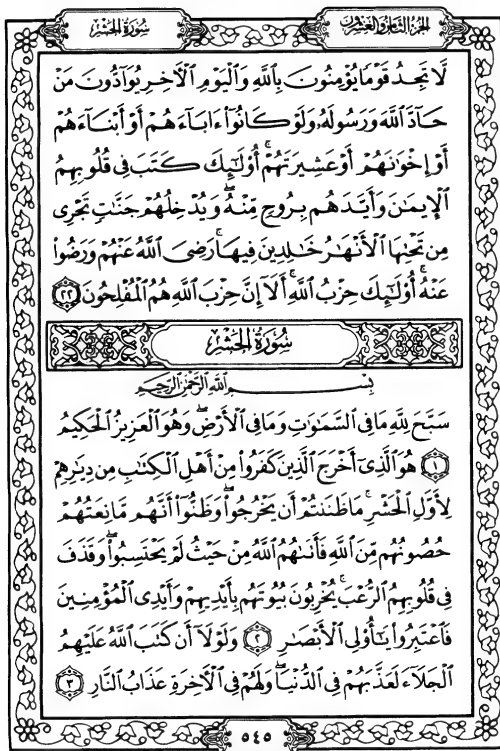 سُورَةُ الحَشْرِ
الجزء الثامن والعشرون
لَّا تَجِدُ قَوْمًا يُؤْمِنُونَ بِٱللَّهِ وَٱلْيَوْمِ ٱلْءَاخِرِ يُوَآدُّونَ مَنْ
حَآدَّ ٱللَّهَ وَرَسُولَهُۥ وَلَوْ كَانُوٓا۟ ءَابَآءَهُمْ أَوْ أَبْنَآءَهُمْ
أَوْ إِخْوَٰنَهُمْ أَوْ عَشِيرَتَهُمْ ۚ أُو۟لَٰٓئِكَ كَتَبَ فِى قُلُوبِهِمُ
ٱلْإِيمَٰنَ وَأَيَّدَهُم بِرُوحٍ مِّنْهُ ۖ وَيُدْخِلُهُمْ جَنَّٰتٍ تَجْرِى
مِن تَحْتِهَا ٱلْأَنْهَٰرُ خَٰلِدِينَ فِيهَا ۚ رَضِىَ ٱللَّهُ عَنْهُمْ وَرَضُوا۟
عَنْهُ ۚ أُو۟لَٰٓئِكَ حِزْبُ ٱللَّهِ ۚ أَلَآ إِنَّ حِزْبَ ٱللَّهِ هُمُ ٱلْمُفْلِحُونَ ٢٢
سُورَةُ الحَشْرِ
بِسْمِ ٱللَّهِ ٱلرَّحْمَٰنِ ٱلرَّحِيمِ
سَبَّحَ لِلَّهِ مَا فِى ٱلسَّمَٰوَٰتِ وَمَا فِى ٱلْأَرْضِ ۖ وَهُوَ ٱلْعَزِيزُ ٱلْحَكِيمُ
١ هُوَ ٱلَّذِىٓ أَخْرَجَ ٱلَّذِينَ كَفَرُوا۟ مِنْ أَهْلِ ٱلْكِتَٰبِ مِن دِيَٰرِهِمْ
لِأَوَّلِ ٱلْحَشْرِ ۚ مَا ظَنَنتُمْ أَن يَخْرُجُوا۟ ۖ وَظَنُّوٓا۟ أَنَّهُم مَّانِعَتُهُمْ
حُصُونُهُم مِّنَ ٱللَّهِ فَأَتَىٰهُمُ ٱللَّهُ مِنْ حَيْثُ لَمْ يَحْتَسِبُوا۟ ۖ وَقَذَفَ
فِى قُلُوبِهِمُ ٱلرُّعْبَ ۚ يُخْرِبُونَ بُيُوتَهُم بِأَيْدِيهِمْ وَأَيْدِى ٱلْمُؤْمِنِينَ
فَٱعْتَبِرُوا۟ يَٰٓأُو۟لِى ٱلْأَبْصَٰرِ ٢ وَلَوْلَآ أَن كَتَبَ ٱللَّهُ عَلَيْهِمُ
ٱلْجَلَآءَ لَعَذَّبَهُمْ فِى ٱلدُّنْيَا ۖ وَلَهُمْ فِى ٱلْءَاخِرَةِ عَذَابُ ٱلنَّارِ ٣
٥٤٥